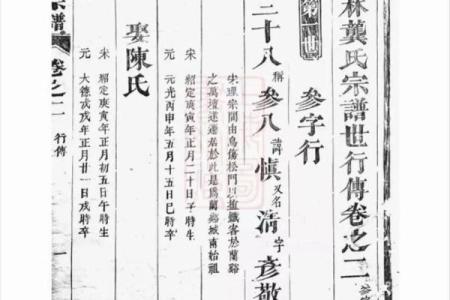 林龔氏宗譜世行傳卷之二
參字行
二十八 稱 參八 諱 慎 又名 清 字 彥敬
宋理宗間由烏傷松門
鐵客於蘭谿
之萬壇迷遂居於此是爲蘭谿城南始祖
宋 紹定庚寅年正月二十日子時生
元 元光丙申年五月十五日巳時卒
娶陳氏
宋 紹定庚寅年正月初五日午時生
元 大德戊戌年正月廿一日戌時卒
宗譜
卷之二
行傳